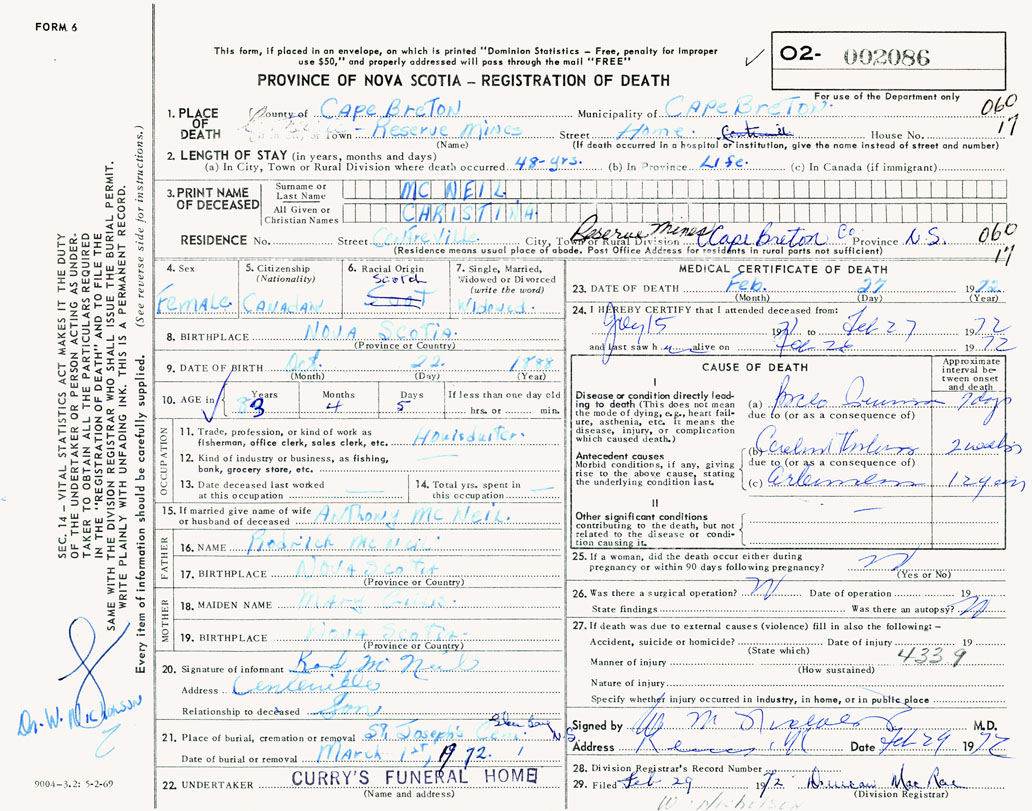 FORM 6
This form, if placed in an envelope, on which is printed "Dominion Statistics – Free, penalty for improper
use $50," and properly addressed will pass through the mail "FREE"
O2- 002086
PROVINCE OF NOVA SCOTIA – REGISTRATION OF DEATH
For use of the Department only
1. PLACE OF DEATH
County of Cape Breton Municipality of Cape Breton 060
or Town Reserve Mines Street Home. House No. 17
(Name) (If death occurred in a hospital or institution, give the name instead of street and number)
2. LENGTH OF STAY (in years, months and days)
(a) In City, Town or Rural Division where death occurred 48-yrs. (b) In Province Life. (c) In Canada (if immigrant)
3. PRINT NAME OF DECEASED
Surname or Last Name MC NEIL
All Given or Christian Names CHRISTINA
RESIDENCE No. Street Centreville City, Town or Rural Division Reserve Mines Cape Breton Co. Province N.S. 060
(Residence means usual place of abode. Post Office Address for residents in rural parts not sufficient) 17
4. Sex Female
5. Citizenship (Nationality) Canadian
6. Racial Origin Scotch
7. Single, Married, Widowed or Divorced (write the word) Widowed.
8. BIRTHPLACE Nova Scotia.
(Province or Country)
9. DATE OF BIRTH Oct. 22 1888
(Month) (Day) (Year)
10. AGE in Years 83 Months 4 Days 5 If less than one day old hrs. or min.
OCCUPATION
11. Trade, profession, or kind of work as
fisherman, office clerk, sales clerk, etc.
12. Kind of industry or business, as fishing,
bank, grocery store, etc.
13. Date deceased last worked
at this occupation
14. Total yrs. spent in
this occupation
15. If married give name of wife
or husband of deceased Anthony Mc Neil.
FATHER
16. NAME Rodrick Mc Neil
17. BIRTHPLACE Nova Scotia
(Province or Country)
MOTHER
18. MAIDEN NAME Mary Gillis.
19. BIRTHPLACE Nova Scotia.
(Province or Country)
20. Signature of informant Rod Mc Neil
Address Centreville
Relationship to deceased Son
21. Place of burial, cremation or removal St. Joseph's Cem. Glace Bay N.S.
Date of burial or removal March 1st, 1972.
22. UNDERTAKER CURRY'S FUNERAL HOME
(Name and address)
MEDICAL CERTIFICATE OF DEATH
23. DATE OF DEATH Feb. 27 1972
(Month) (Day) (Year)
24. I HEREBY CERTIFY that I attended deceased from:
15 1971 to Feb 27 1972
and last saw h alive on Feb 26 1972
CAUSE OF DEATH
Approximate interval between onset and death
I
Disease or condition directly lead-
ing to death (This does not mean
the mode of dying, e.g., heart fail-
ure, asthenia, etc. It means the
disease, injury, or complication
which caused death.)
(a) Broncho Pneumonia 7 days
due to (or as a consequence of)
Antecedent causes
Morbid conditions, if any, giving
rise to the above cause, stating
the underlying condition last.
(b) Cerebral Thrombosis 2 weeks
due to (or as a consequence of)
(c) 12 years
II
Other significant conditions
contributing to the death, but not
related to the disease or condi-
tion causing it.
25. If a woman, did the death occur either during
pregnancy or within 90 days following pregnancy?
(Yes or No)
26. Was there a surgical operation? N Date of operation 19
State findings Was there an autopsy? N
27. If death was due to external causes (violence) fill in also the following: –
Accident, suicide or homicide? Date of injury 19
(State which) 433 9
Manner of injury
(How sustained)
Nature of injury
Specify whether injury occurred in industry, in home, or in public place
Signed by M.D.
Address Date Feb 29 1972
28. Division Registrar's Record Number
29. Filed Feb 29 1972 Duncan Mac Rae
(Division Registrar)
W. Nicholson
SEC. 14 – VITAL STATISTICS ACT MAKES IT THE DUTY
OF THE UNDERTAKER OR PERSON ACTING AS UNDER-
TAKER TO OBTAIN ALL THE PARTICULARS REQUIRED
IN THE "REGISTRATION OF DEATH" AND TO FILE THE
SAME WITH THE DIVISION REGISTRAR WHO SHALL ISSUE THE BURIAL PERMIT.
WRITE PLAINLY WITH UNFADING INK. THIS IS A PERMANENT RECORD.
Every item of information should be carefully supplied. (See reverse side for instructions.)
Dr. W. Nicholson
9004-3.2: 5-2-69